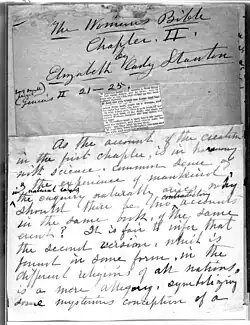 The Woman's Bible
Chapter II.
by
Elizabeth Cady Stanton
Genesis II 21-25.
As the account of the creation
in the first chapter, is in harmony
with science, common sense, &
the experience of mankind
in natural laws,
the enquiry naturally arises, why
should there be two contradictory accounts
in the same book, of the same
event? It is fair to infer that
the second version, which is
found in some form, in the
different religions of all nations,
is a mere allegory, symbolizing
some mysterious conception of a